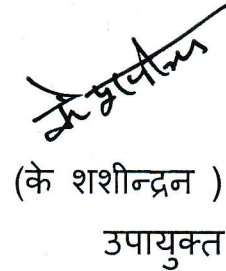 (के शशीन्द्रन )
उपायुक्त